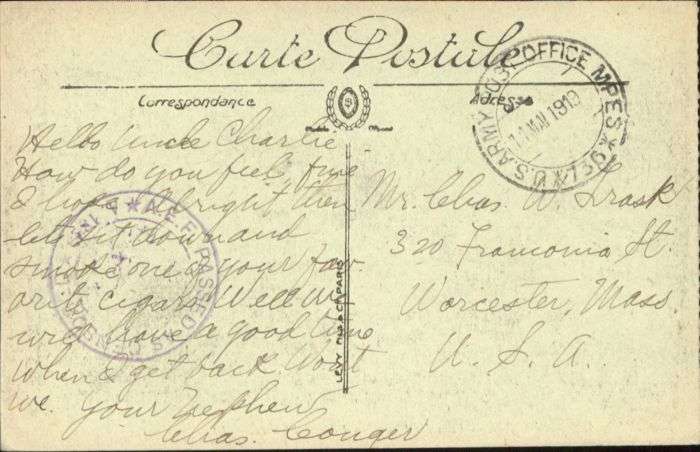 Carte Postale
Correspondance
Adresse
U.S. ARMY POST OFFICE M.P.E.S. 
14 MAI 1919
Hello Uncle Charlie
How do you feel fine
I hope Allright then
lets sit down and
smoke one of your fav
orit cigars. Well we
will have a good time
when I get back Wont
we. Your Nephew
Chas. Conger
A.E.F. PASSED
LEVY FILS & CIE PARIS
Mr. Chas. W. Trask
320 Franconia St.
Worcester, Mass.
U. S. A.